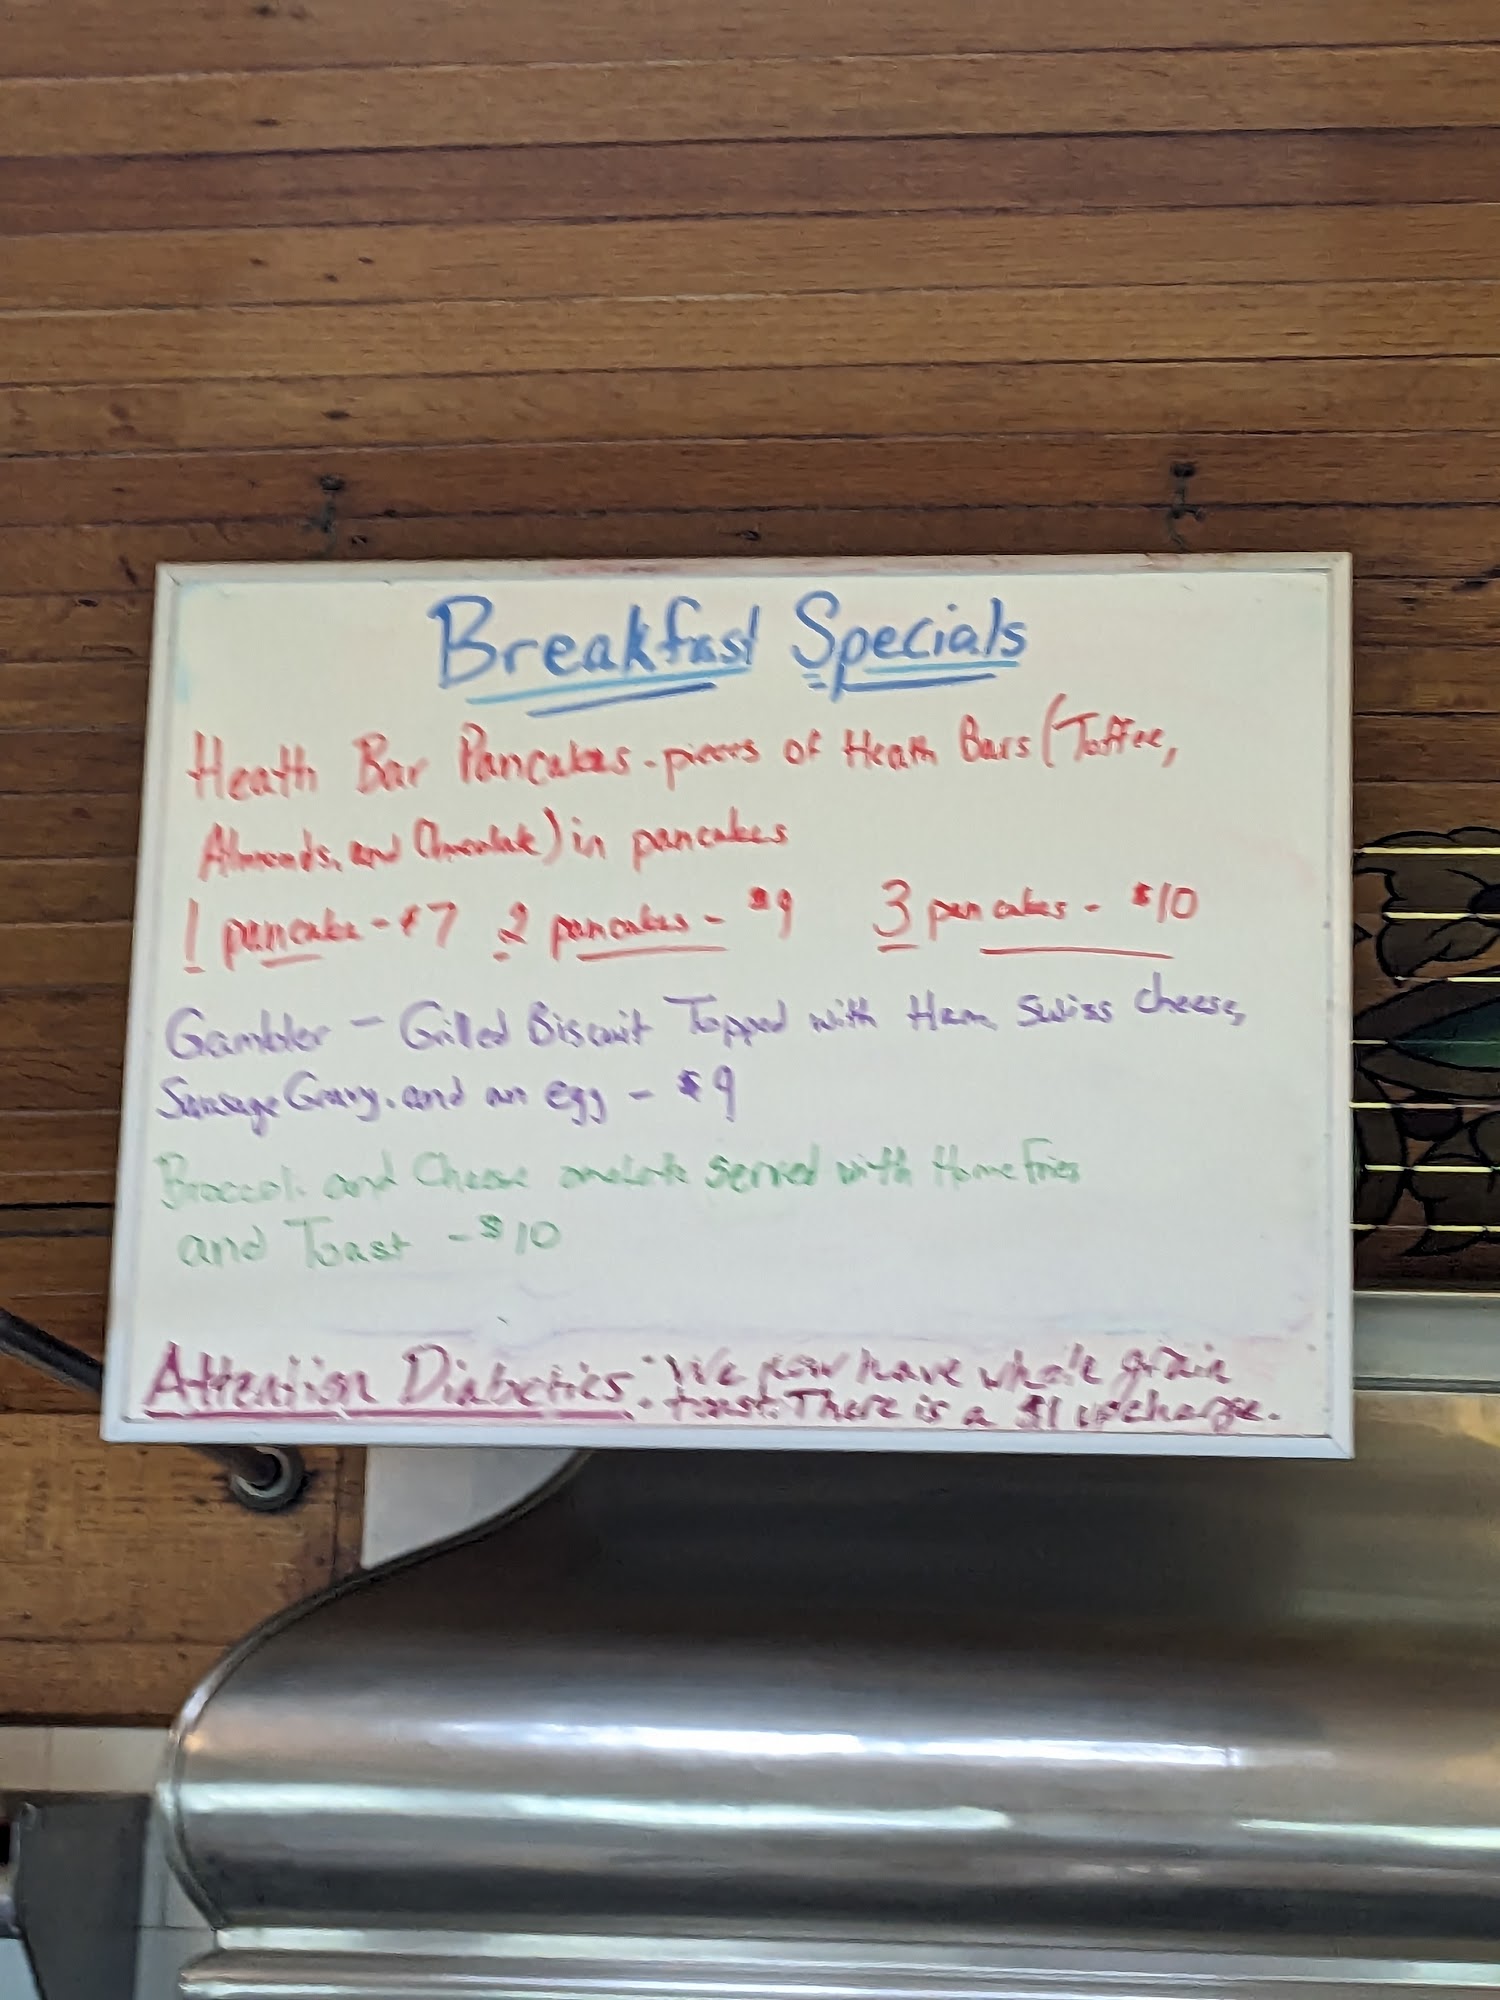 Breakfast Specials
Heath Bar Pancakes - pieces of Heath Bars (Toffee,
Almonds, and Chocolate) in pancakes
1 pancake - $7 2 pancakes - $9 3 pancakes - $10
Gambler - Grilled Biscuit Topped with Ham, Swiss cheese,
Sausage Gravy, and an egg - $9
Broccoli and Cheese omelete served with Home Fries
and Toast - $10
Attention Diabetics: We now have whole grain
toast. There is a $1 upcharge.